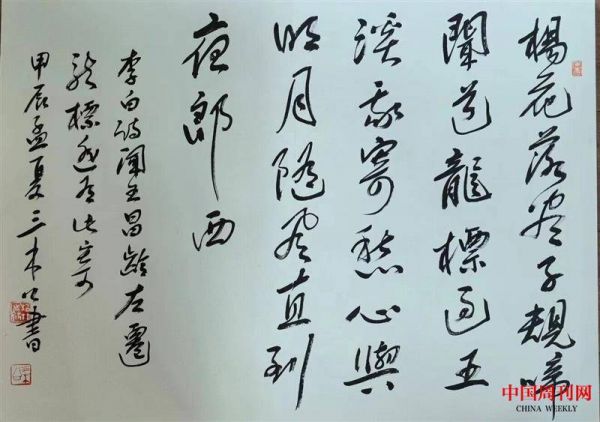 楊花落盡子規啼
聞道龍標過五
溪我寄愁心與
明月隨風直到
夜郎西
李白詩聞王昌齡左遷
龍標遙有此寄
甲辰孟夏三書
中国周刊网
CHINA WEEKLY